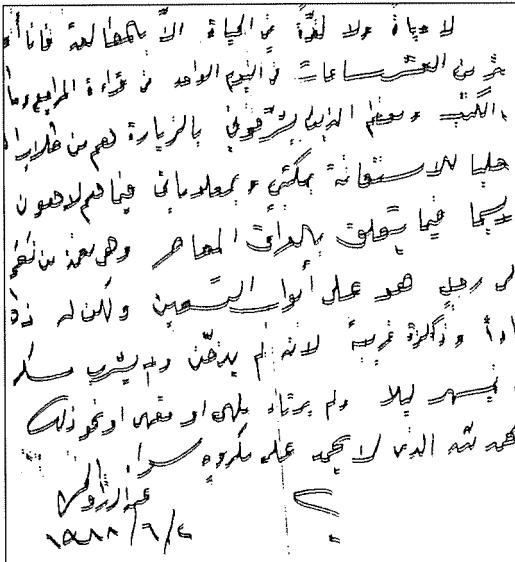 لا حياة ولا لذة في الحياة الا بالمطالعة فانا أ
ثر من العشر ساعات في اليوم الواحد في قراءة المراجع وما
الكتب ومعظم الذين يشرفوني بالزيارة هم من طلاب ا
طلبا للاستعانة بمكتبي وبمعلوماتي فيما هم لاحقون
سيما فيما يتعلق بالعراق المعاصر وهي نعمة من نعم
لى رجل هو على أبواب التسعين ولكن له ذ
وذاكرة غريبة لأنه لم يدخن ولم يشرب مسكر
يسهر ليلا ولم يرتاد ملهى او مقهى او نحو ذلك
حمد لله الذي لا يحمد على مكروه سواه
عبد الرزاق الحسني
١٩٨٨/٦/٤